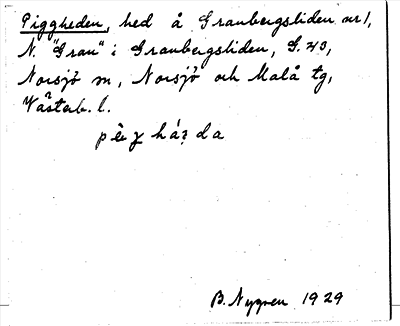 Piggheden, hed å Granbergsliden nr 1,
N. "Gran" i Granbergsliden, S. 43,
Norsjö sn, Norsjö och Malå tg,
Västerb. l.
B. Nygren 1929